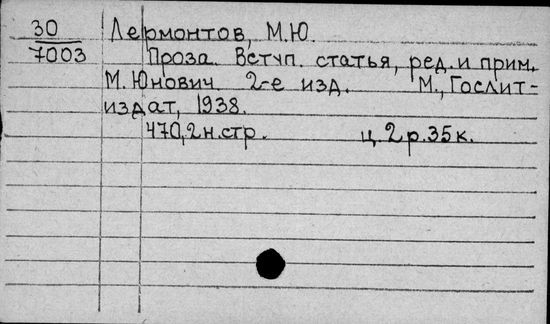 30 Лермонтов, М.Ю.
7003 Проза. Вступ. статья, ред. и прим.
М. Юнович. 2-е изд. М., Гослит-
издат, 1938.
470,2 н.стр. ц. 2 р. 35 к.